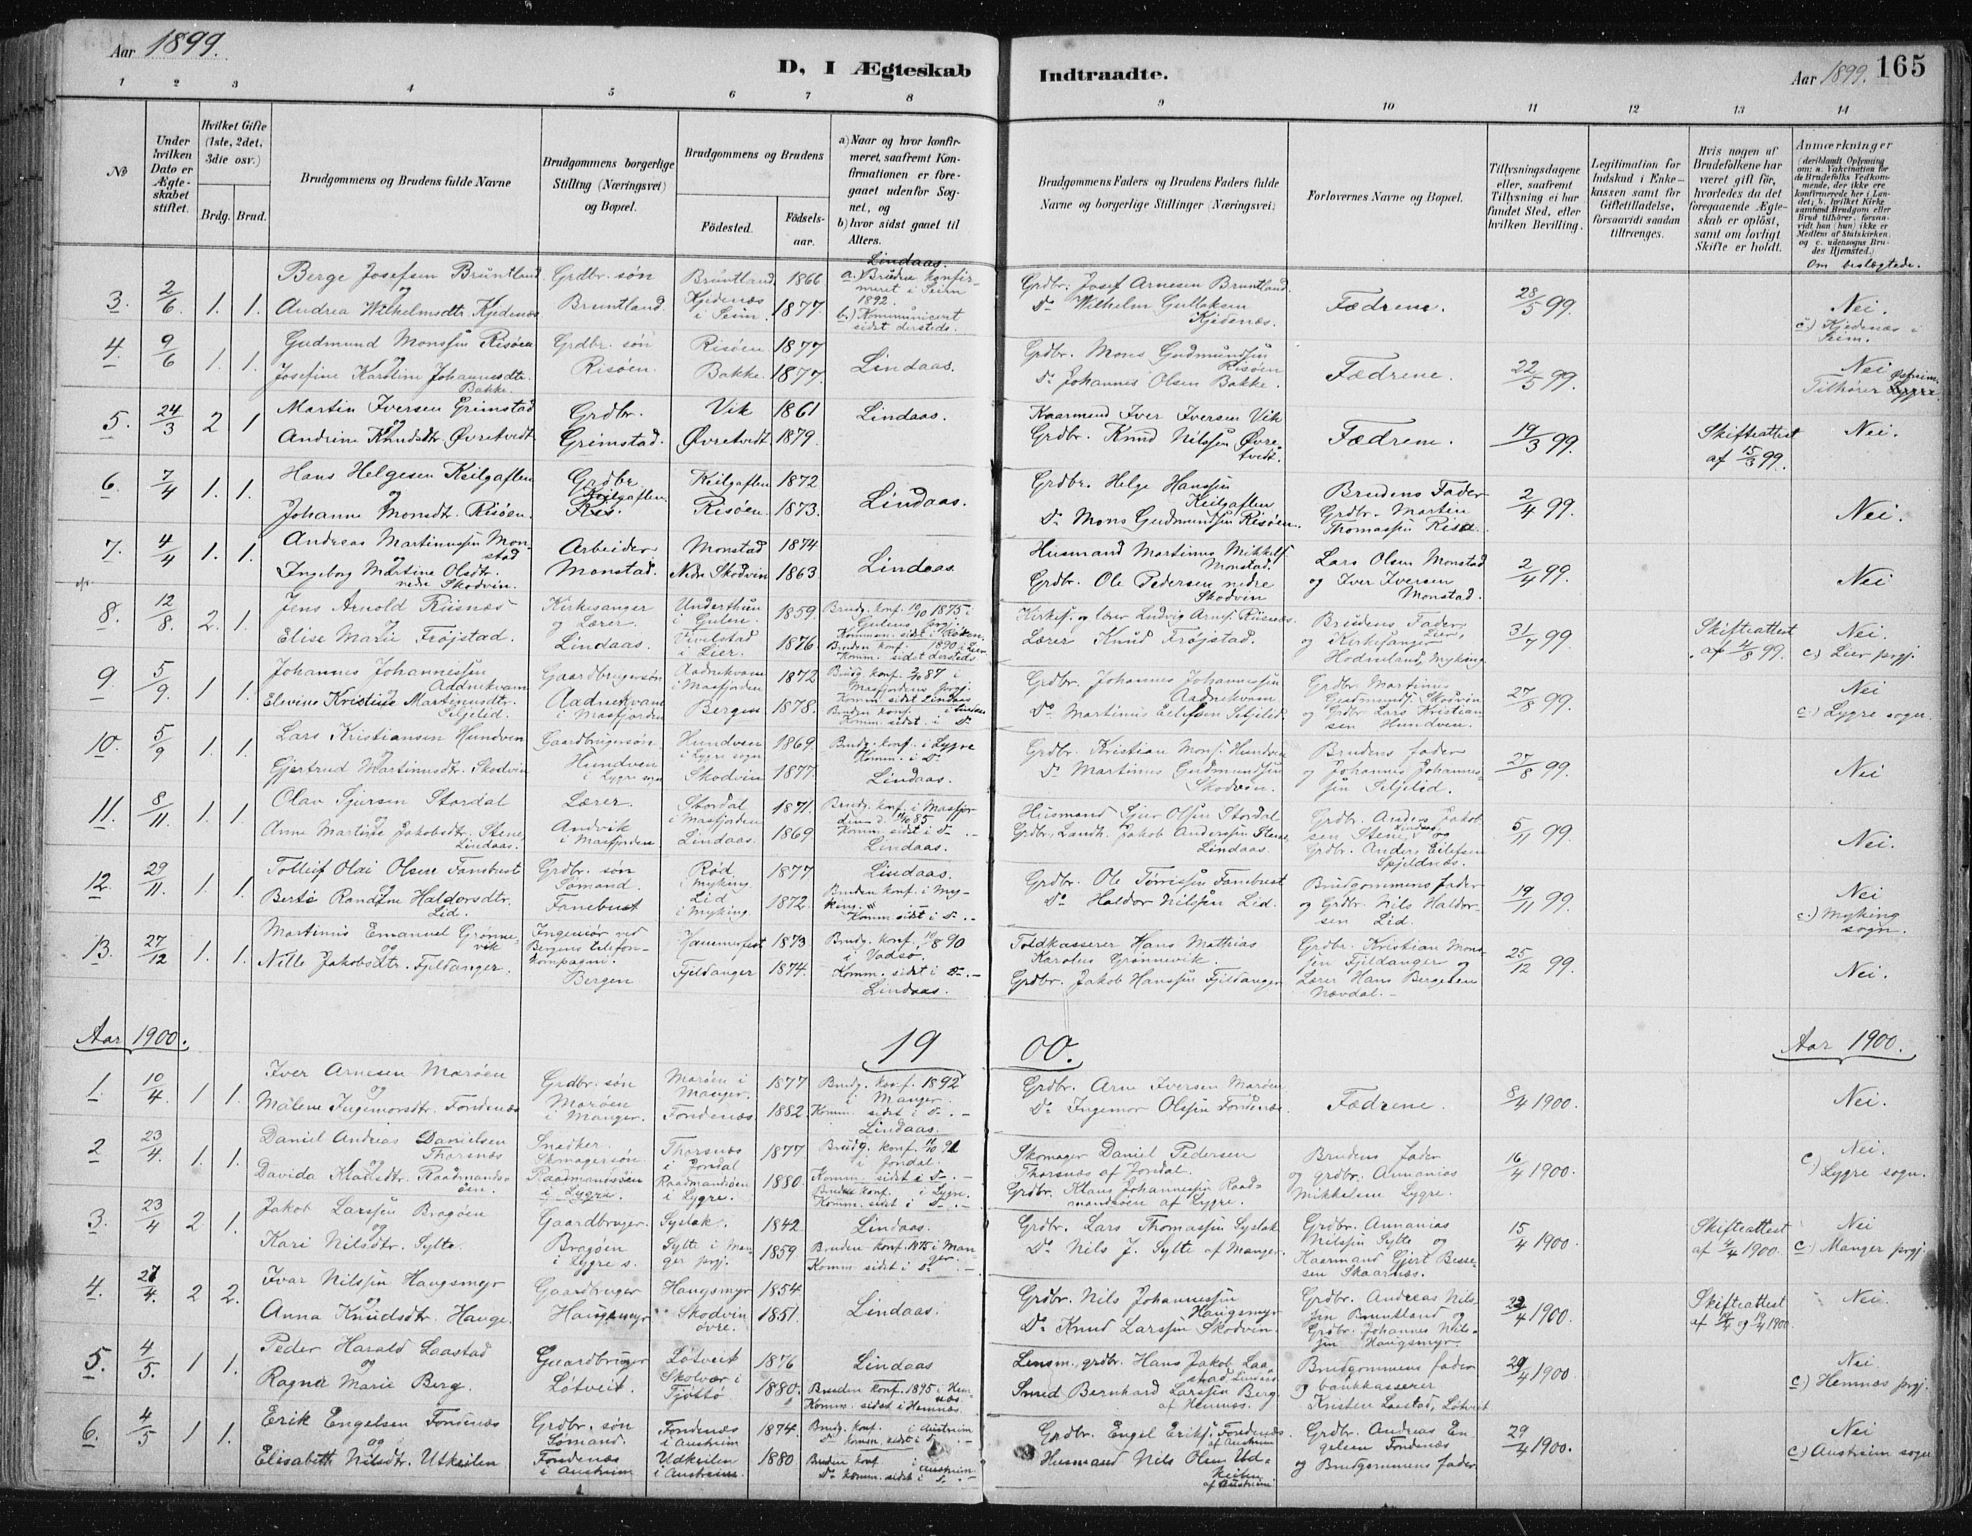 Aar 1899.
D, I Ægteskab Indtraadte.
Aar 1899. 165
1 2 3 4 5 6 7 8 9 10 11 12 13 14
No
Under hvilken Dato er Ægteskabet stiftet.
Hvilket Gifte (1ste, 2det, 3die osv.)
Brdg. Brud.
Brudgommens og Brudens fulde Navne
Brudgommens borgerlige Stilling (Næringsvei) og Bopæl.
Brudgommens og Brudens
Fødested. Fødselsaar.
a) Naar og hvor konfirmeret, saafremt Konfirmationen er foregaaet udenfor Sognet, og
b) hvor sidst gaaet til Alters.
Brudgommens Faders og Brudens Faders fulde Navne og borgerlige Stillinger (Næringsvei)
Forlovernes Navne og Bopæl.
Tillysningsdagene eller, saafremt Tillysning ei har fundet Sted, efter hvilken Bevilling.
Legitimation for Indskud i Enkekassen samt for Giftetilladelse, forsaavidt saadan tiltrænges.
Hvis nogen af Brudefolkene har været gift før, hvorledes da det foregaaende Ægteskab er opløst, samt om lovligt Skifte er holdt.
Anmærkninger
om beslægtede.
3. 2/6 1. 1. Berge Josefsen Bruntland
og
Andrea Wilhelmsdt. Kjedenæs
Grdbr. søn
Bruntland.
Bruntland 1866
Kjedenæs i Seim 1877.
Lindaas.
a. Bruden konfirmeret i Seim 1892.
b.) Kommuniceret sidst dersteds.
Grdbr. Josef Arnesen Bruntland.
Do Wilhelm Gullaksen Kjedenæs.
Fædrene. 28/5 99. Nei.
c.) Kjedenæs i Seim.
4. 9/6 1. 1. Gudmund Monssøn Risøen
og
Josefine Karoline Johannesdtr. Bakke.
Grdbr. søn
Risøen.
Risøen 1877
Bakke. 1877.
Lindaas.
Grdbr. Mons Gudmundsøn Risøen
Do Johannes Olsen Bakke.
Fædrene. 22/5 99. Nei
Tilhører Lygre.
5. 24/3 2 1 Martin Iversen Grimstad
og
Andrine Knudsdtr. Øvretvedt
Grdbr.
Grimstad.
Vik 1861
Øvretvedt 1879.
Lindaas.
Kaarmand Iver Iversen Vik
Grdbr. Knud Nilssøn Øvretvedt.
Fædrene. 19/3 99. Skifteattest af 15/3 99. Nei.
6. 7/4 1. 1. Hans Helgesen Keilgaflen
og
Johanne Monsdtr. Risøen.
Grdbr.
Keilgaflen
Keilgaflen 1872
Risøen 1873.
Lindaas.
Grdbr. Helge Hanssøn Keilgaflen
Do Mons Gudmundsøn Risøen.
Brudens Fader
Grdbr. Marten Thomassøn Risø
2/4 99. Nei.
7. 4/4 1. 1. Andreas Martinussøn Monstad
og
Ingeborg Martine Olsdtr. nedre Skodvin.
Arbeider
Monstad.
Monstad 1874
Nedre Skodvin 1863.
Lindaas.
Husmand Martinus Mikkels. Monstad.
Grdbr. Ole Pedersen nedre Skodvin
Lars Olsen Monstad
og Iver Iversen Monstad.
2/4 99. Nei
8. 12/8. 2. 1. Jens Arnold Riisnæs
og
Elise Marie Frøjstad.
Kirkesanger og Lærer
Lindaas.
Underthun i Gulen 1859.
i Lier. 1876
Brudg. konf. 10/10 1875 i Gulens prgj.
Kommun. sidst i Røken.
Bruden konf. 1890 i Lier
Komm. sidst dersteds.
Kirkes. og lærer Ludvig Arns. Riisnæs.
Lærer Knud Frøjstad.
Brudens Fader, Lier,
og Kirkesanger Hodneland, Myking.
31/7 99. Skifteattest af 4/8 99. Nei.
c.) Lier prgj.
9 5/9. 1. 1. Johannes Johannessøn Aadnekvam
og
Elevine Kristine Martinusdtr. Seljelid.
Gaardbrugersøn
Aadnekvam i Masfjorden
Aadnekvam i Masfjorden 1872
Bergen 1878.
Grdbr. Johannes Johannessøn Aadnekvam
Do Martinus Eilefsen Seljelid.
Grdbr. Martinus Gudmunds. Skodvin
og Grdbr. Lars Kristiansen Hundven.
27/8 99. Nei
c.) Lygre sogn.
10. 5/9 1. 1. Lars Kristiansen Hundven
og
Gjertrud Martinusdtr. Skodvin
Gaardbrugersøn.
Hundven i Lygre sogn
Hundven i Lygre sogn 1869.
Skodvin 1877.
Brudg. konf. i Lygre
Komm. i Do
Lindaas.
Grdbr. Kristian Mons. Hundven
Do Martinus Gudmundsøn Skodvin.
Brudens fader
og Johannes Johannessøn Seljelid.
27/8 99. Nei
11. 8/11. 1. 1. Olav Sjursen Stordal
og
Anne Martine Jakobsdtr. Stene Lindaas.
Lærer.
Andvik i Masfjorden
Stordal i Masfjorden 1871.
Lindaas. 1869
Komm. sidst i Do
Lindaas.
Husmand Sjur Olsøn Stordal
Grdbr., Landh. Jakob Anderssøn Stene Lindaas.
Grdbr. Anders Jakobsen Stene, Lindaas og
Grdbr. Anders Eilefsen Spjeldnæs.
5/11 99. Nei.
12. 29/11. 1. 1. Tolleif Olai Olsen Fanebust
og
Berte Randine Haldorsdtr. Lid.
Grdbr. søn
Sømand.
Fanebust
Rød i Myking 1877.
Lid i Myking 1872.
Lindaas.
Bruden konf. i Myking.
Komm. sidst i Do
Grdbr. Ole Tørrissøn Fanebust
Do Haldor Nilssøn Lid.
Brudgommens fader
og Grdbr. Nils Haldorsen Lid.
19/11 99. Nei
c.) Myking sogn.
13. 27/12 1. 1. Martinus Emanuel Grønnevik
og
Nille Jakobsdtr. Fjeldanger.
Ingeniør ved Bergens telefonkompagni.
Bergen
Hammerfest 1873
Fjeldanger 1874.
Brudg. konf. 10/8 90 i Vadsø.
Komm. sidst i Do
Lindaas.
Toldkasserer Hans Mathias Karolus Grønnevik.
Grdbr. Jakob Hanssøn Fjeldanger
Grdbr. Kristian Monssøn Fjeldanger og
Lærer Hans Bergesen Nævdal.
25/12 99. Nei.
Aar 1900. 19 00. Aar 1900.
1. 10/4 1 1. Iver Arnesen Marøen
og
Malene Ingemorsdtr. Fondenæs
Grdbr. søn
Marøen i Manger.
Marøen i Manger. 1877
Fondenæs 1882.
Brudg. konf. 1892 i Manger.
Komm. sidst i Do
Lindaas.
Grdbr. Arne Iversen Marøen
Do Ingemor Olsøn Fondenæs.
Fædrene. 8/4 1900. Nei.
2 23/4. 1. 1. Daniel Andreas Danielsen Thorsnæs
og
Davida Klausdtr. Raadmandsøen.
Snedker.
Skomagersøn.
Raadmandsøen i Lygre.
Thorsnæs i Jondal 1877
Raadmandsøen i Lygre. 1880.
Brudg. konf. 11/10 91 i Jondal.
Komm. sidst i Do
Bruden konf. i Lygre.
Komm. sidst i Do
Skomager Daniel Pedersen Thorsnæs af Jondal.
Grdbr. Klaus Johannessøn Raadmandsøen af Lygre.
Brudens fader
og grdbr. Annanias Mikkelsen Lygre.
16/4 1900. Nei.
c) Lygre sogn.
3. 23/4 2 1. Jakob Larssøn Bragøen
og
Kari Nilsdtr. Sylte.
Gaardbruger.
Bragøen i Lygre s.
Syslak. 1842
Sylte i Manger prgj. 1859.
Lindaas.
Bruden konf. 1875 i Manger.
Komm. sidst i Do
Grdbr. Lars Thomassøn Syslak
Do Nils J. Sylte af Manger.
Grdbr. Annanias Nilssøn Sylte og
Kaarmand Gjert Bessesen Skaarnæs.
15/4 1900. Skifteattest af 4/4 1900. Nei
c) Manger prgj.
4. 27/4. 2 2. Ivar Nilssøn Haugsmyr
og
Anna Knudsdtr. Hauge.
Gaardbruger
Haugsmyr
Haugsmyr 1854.
Skodvin øvre. 1851.
Lindaas.
Grdbr. Nils Johannessøn Haugsmyr
Do Knud Larssøn Skodvin.
Grdbr. Andreas Nilssøn Bruntland og
Grdbr. Johannes Nilssøn Haugsmyr.
22/4 1900. Skifteattest Nei.
5. 4/5 1. 1. Peder Harald Laastad
og
Ragna Marie Berg.
Gaardbruger
Løtveit.
Løtveit 1876
Skolvær i Tjøttø 1880.
Lindaas
Bruden konf. 1895 i Hemnæs
Komm. sidst i Hemnæs.
Lensm., grdbr. Hans Jakob Laastad, Lindaas
Smed Bernhard Larssøn Berg af Hemnæs.
Brudgommens fader
og bankkasserer Kristen Laastad, Løtveit
29/4 1900. Nei
c) Hemnæs prgj.
6. 4/5 1 1. Erik Engelsen Fondenæs
og
Elisabeth Nilsdtr. Utkeilen
Grdbr. søn
Sømand.
Fondenæs i Austrim
Fondenæs i Austrim 1874.
Udkeilen i Austrim 1880
Brudg. konf. i Austrim
Do komm. sidst i Do
Bruden konf. i Austrim
Do komm. sidst i Do
Grdbr. Engel Eriks. Fondenæs af Austrim
Husmand Nils Olsen Udkeilen af Austrim
Grdbr. Andreas Engelsen Fondenæs
og Brudgommens fader
29/4 1900. Nei
c) Austrim sogn